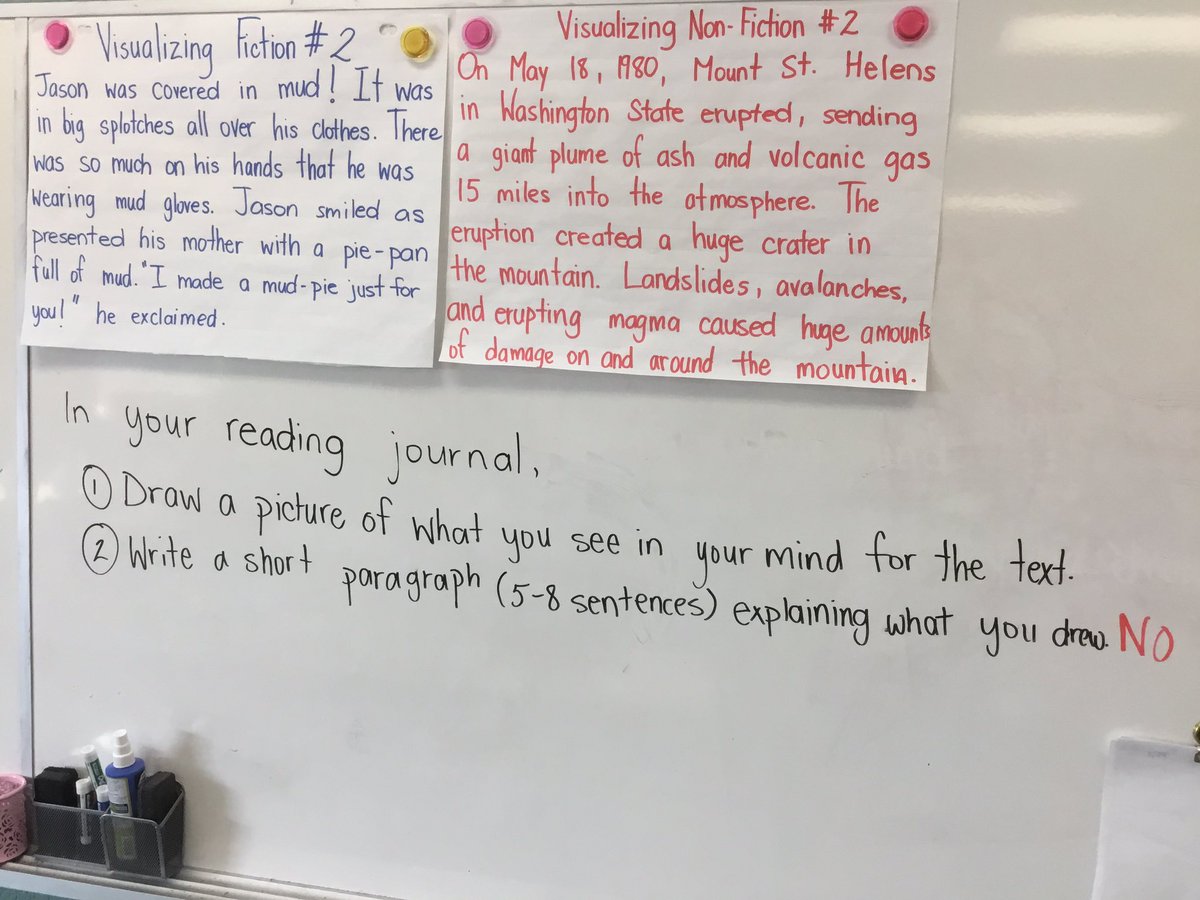 Visualizing Fiction #2
Jason was covered in mud! It was
in big splotches all over his clothes. There
was so much on his hands that he was
wearing mud gloves. Jason smiled as
presented his mother with a pie-pan
full of mud. "I made a mud-pie just for
you!" he exclaimed.
Visualizing Non-Fiction #2
On May 18, 1980, Mount St. Helens
in Washington State erupted, sending
a giant plume of ash and volcanic gas
15 miles into the atmosphere. The
eruption created a huge crater in
the mountain. Landslides, avalanches,
and erupting magma caused huge amounts
of damage on and around the mountain.
In your reading journal,
① Draw a picture of what you see in your mind for the text.
② Write a short paragraph (5-8 sentences) explaining what you drew. NO